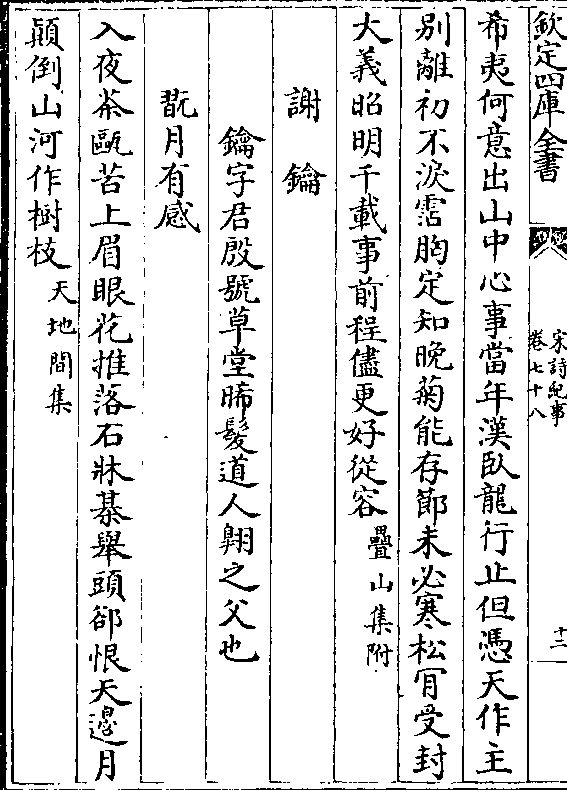 欽定四庫全書
宋詩紀事
卷七十八
十二
希夷何意出山中心事當年漢臥龍行止但憑天作主
别離初不淚霑胸定知晚菊能存節未必寒松肎受封
大義昭明千載事前程儘更好從容疊山集附
謝鑰
鑰字君殷號草堂晞髮道人翺之父也
翫月有感
入夜茶甌苦上眉眼花推落石牀棊舉頭郤恨天邊月
顛倒山河作樹枝天地間集